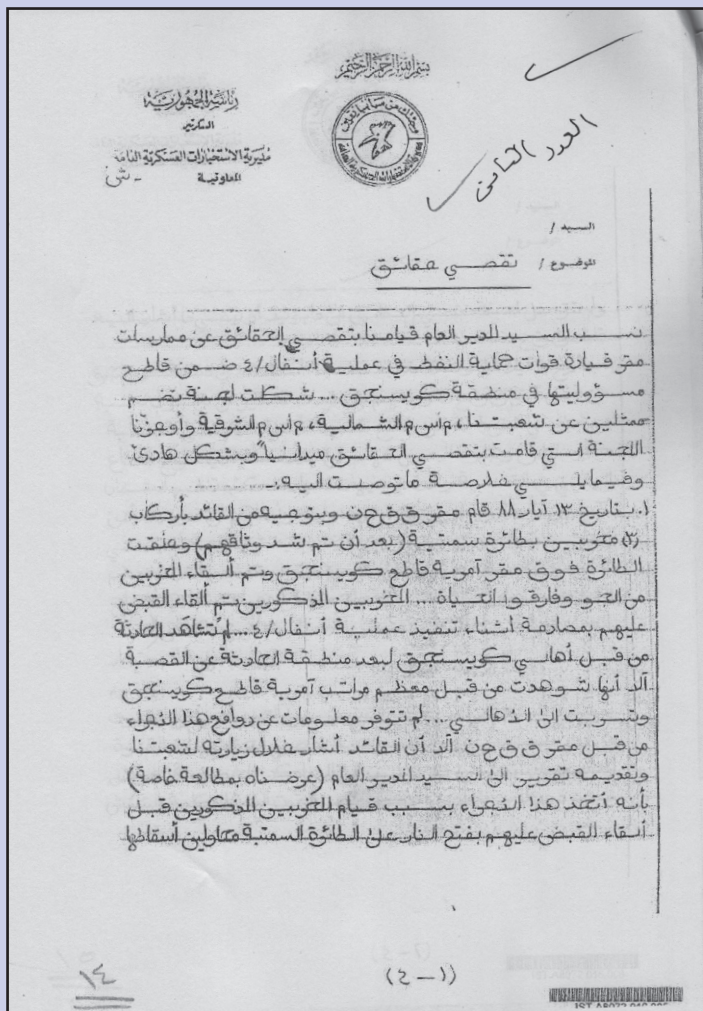 بسم الله الرحمن الرحيم
رئاسة الجمهورية
السكرتير
مديرية الاستخبارات العسكرية العامة
المعاونية
العدد الثامن
السيد /
الموضوع / تقصي حقائق
نسب السيد المدير العام قيامنا بتقصي الحقائق عن ممارسات
مقر قيادة قوات حماية النفط في عملية أنفال/٤ ضمن قاطع
مسؤوليتها في منطقة كويسنجق ... شكلت لجنة تضم
ممثلين عن شعبتنا، م أس م الشمالية، م أس م الشرقية وأوجزنا
اللجنة التي قامت بتقصي الحقائق ميدانياً وبشكل هادئ
وفيما يلي خلاصة ما توصلت اليه :-
١. بتاريخ ١٣ آيار ٨٨ قام مقر ق ق ح ن وبتوجيه من القائد بأركاب
مخربين بطائرة سمتية (بعد أن تم شد وثاقهم) وحلقت
الطائرة فوق مقر آمرية قاطع كويسنجق وتم ألقاء المخربين
من الجو وفارقوا الحياة ... المخربين المذكورين تم ألقاء القبض
عليهم بمصادمة أثناء تنفيذ عملية أنفال/٤ ... لم تشاهد الحادثة
من قبل أهالي كويسنجق لبعد منطقة الحادثة عن القصبة
ألا أنها شوهدت من قبل معظم مراتب آمرية قاطع كويسنجق
وتسربت الى الأهالي ... لم تتوفر معلومات عن دوافع هذا الأجراء
من قبل مقر ق ق ح ن ألا أن القائد أشار خلال زيارته لشعبتنا
وتقديمه تقرير الى السيد المدير العام (عرضناه بمطالعة خاصة)
بأنه أتخذ هذا الأجراء بسبب قيام المخربين المذكورين قبل
ألقاء القبض عليهم بفتح النار على الطائرة السمتية محاولين أسقاطها
(١ - ٤)
١٤